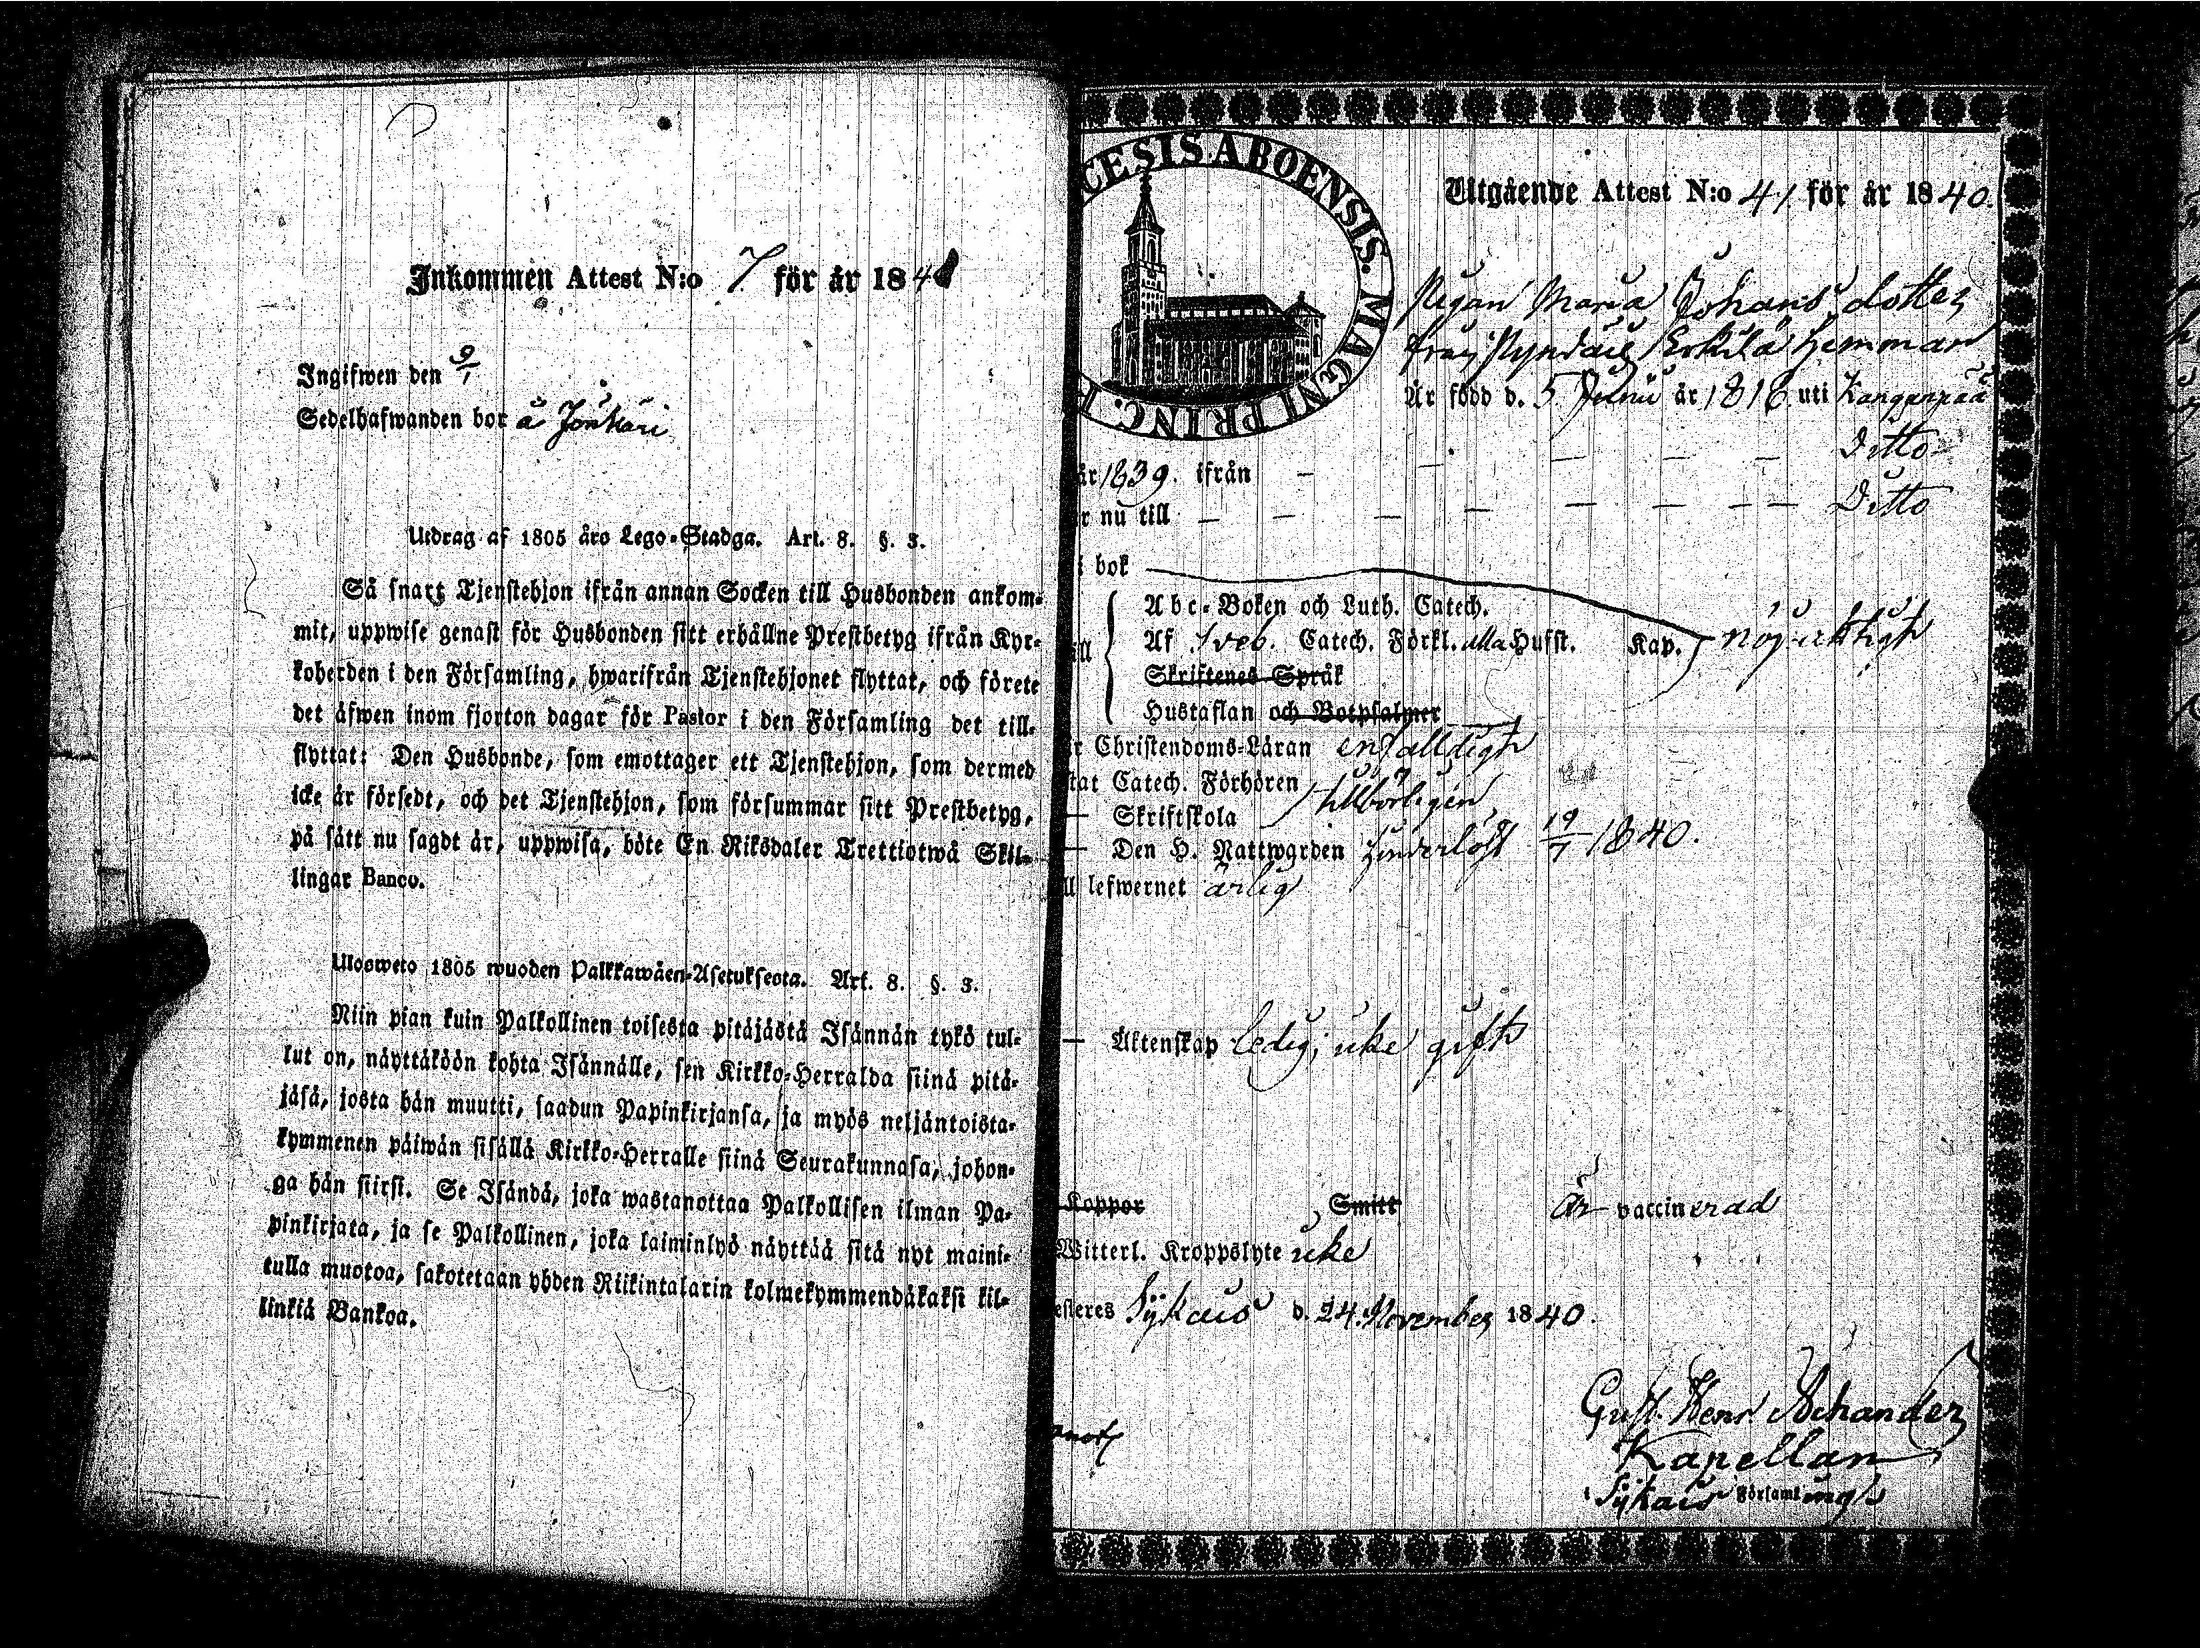 Inkommen Attest N:o 7 för år 184
Ingifwen den 9/1
Sedelhafwanden bor å Jönkäri
Utdrag af 1805 års Lego-Stadga. Art. 8. §. 3.
Så snart Tjenstehjon ifrån annan Socken till Husbonden ankom-
mit, uppwise genast för Husbonden sitt erhållne Prestbetyg ifrån Kyr-
koherden i den Församling, hwarifrån Tjenstehjonet flyttat, och förete
det äfwen inom fjorton dagar för Pastor i den Församling det till-
flyttat: Den Husbonde, som emottager ett Tjenstehjon, som dermed
icke är försedt, och det Tjenstehjon, som försummar sitt Prestbetyg,
på sätt nu sagdt är, uppwisa, böte En Riksdaler Trettiotwå Skil-
lingar Banco.
Ulosweto 1805 wuoden Palkkawäen-Asetuksesta. Art. 8. §. 3.
Niin pian kuin Palkollinen toisesta pitäjästä Isännän tykö tul-
lut on, näyttäköön kohta Isännälle, sen Kirkko-Herralda siinä pitä-
jäsä, josta hän muutti, saadun Papinkirjansa, ja myös neljäntoista-
kymmenen päiwän sisällä Kirkko-Herralle siinä Seurakunnasa, johon-
ga hän siirsi. Se Isändä, joka wastanottaa Palkollisen ilman Pa-
pinkirjata, ja se Palkollinen, joka laiminlyö näyttää sitä nyt maini-
tulla muotoa, sakotetaan yhden Riikintalarin kolmekymmendäkaksi kil-
linkiä Bankoa.
CESIS ABOENSIS. MAGNI PRINC.
Utgående Attest N:o 41 för år 1840.
Pigan Maria Johans dotter
från Hemman
Är född d. 5 Junii år 1816 uti Kanganpää
Ditto
år 1839. ifrån — — — — —
r nu till — — — — — — — Ditto
i bok
Abc-Boken och Luth. Catech.
Af Sveb. Catech. Förkl. alla Hufst. Kap. nöjaktigt
Skriftenes Språk
Hustaflan och Botpsalmer
r Christendoms-Läran enfalldigt
stat Catech. Förhören
— Skriftskola tillbörligen
— Den H. Nattwarden hinderlöst 19/7 1840.
ll lefwernet ärlig
— Äktenskap ledig; icke gift
Koppor Smitt Är vaccinerad
Witterl. Kroppslyte icke
esteres Sÿkais d. 24. November 1840.
Gust. Henr Achander
Kapellan
i Sÿkais Församlings